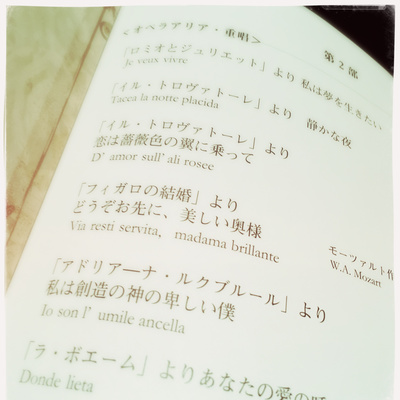 <オペラアリア・重唱>
第2部
「ロミオとジュリエット」より 私は夢を生きたい
Je veux vivre
「イル・トロヴァトーレ」より 静かな夜
Tacea la notte placida
「イル・トロヴァトーレ」より
恋は薔薇色の翼に乗って
D' amor sull' ali rosee
「フィガロの結婚」より
どうぞお先に、美しい奥様
Via resti servita, madama brillante
モーツァルト作
W.A. Mozart
「アドリアーナ・ルクブルール」より
私は創造の神の卑しい僕
Io son l' umile ancella
「ラ・ボエーム」よりあなたの愛の
Donde lieta